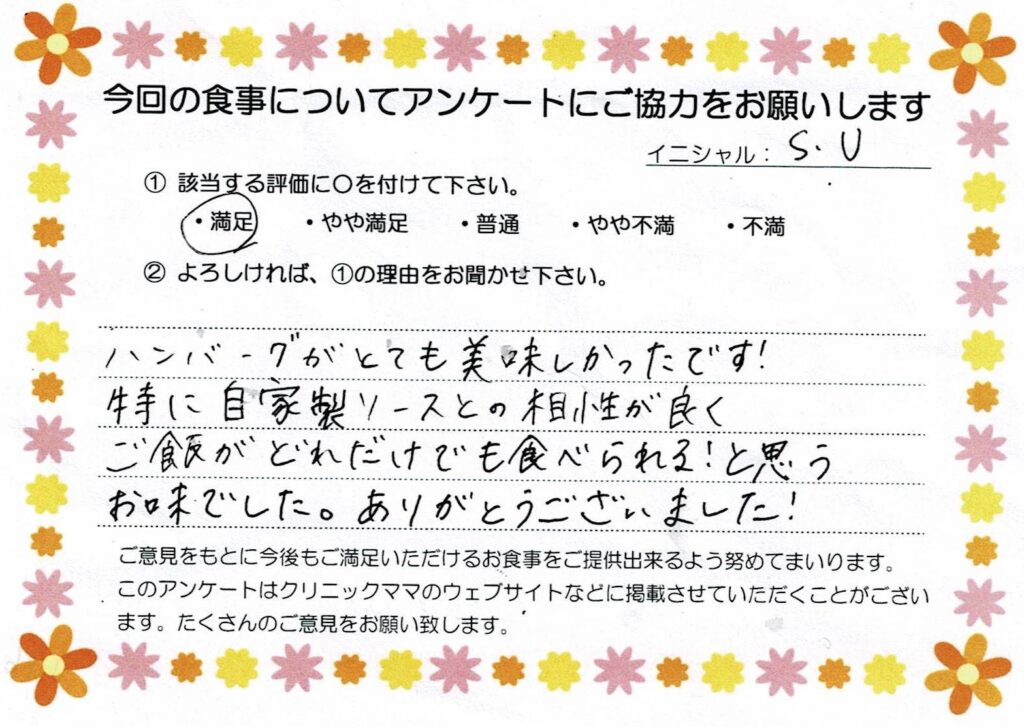 今回の食事についてアンケートにご協力をお願いします
イニシャル： S.U
① 該当する評価に○を付けて下さい。
・満足 ・やや満足 ・普通 ・やや不満 ・不満
② よろしければ、①の理由をお聞かせ下さい。
ハンバーグがとても美味しかったです!
特に自家製ソースとの相性が良く
ご飯がどれだけでも食べられる!と思う
お味でした。ありがとうございました!
ご意見をもとに今後もご満足いただけるお食事をご提供出来るよう努めてまいります。
このアンケートはクリニックママのウェブサイトなどに掲載させていただくことがござい
ます。たくさんのご意見をお願い致します。